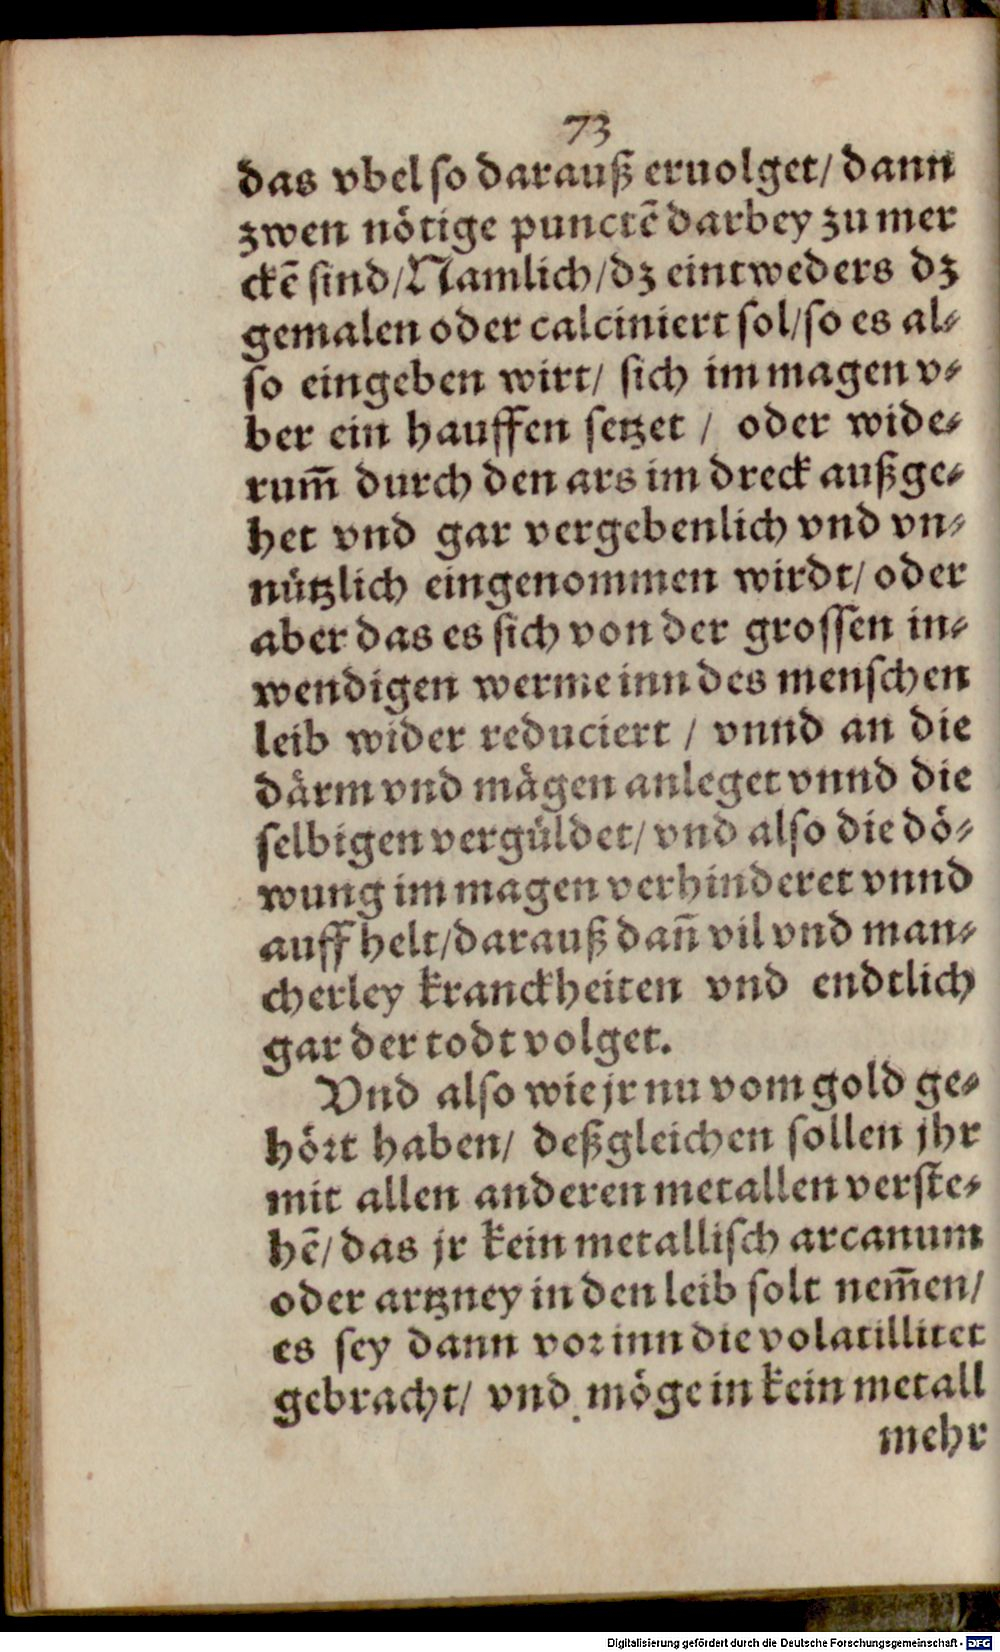 73
das vbel so darauß eruolget/ dann
zwen nötige punctē darbey zu mer
ckē sind/ Namlich/ dz eintweders dz
gemalen oder calciniert sol/ so es al⸗
so eingeben wirt/ sich im magen v⸗
ber ein hauffen setzet / oder wide⸗
rum̄ durch den ars im dreck außge⸗
het vnd gar vergebenlich vnd vn⸗
nützlich eingenommen wirdt/ oder
aber das es sich von der grossen in⸗
wendigen werme inn des menschen
leib wider reduciert / vnnd an die
därm vnd mägen anleget vnnd die
selbigen vergüldet/ vnd also die dö⸗
wung im magen verhinderet vnnd
auff helt/ darauß dan̄ vil vnd man⸗
cherley kranckheiten vnd endtlich
gar der todt volget.
Vnd also wie jr nu vom gold ge⸗
hört haben/ deßgleichen sollen jhr
mit allen anderen metallen verste⸗
hē/ das jr kein metallisch arcanum
oder artzney in den leib solt nem̄en/
es sey dann vor inn die volatillitet
gebracht/ vnd möge in kein metall
mehr
Digitalisierung gefördert durch die Deutsche Forschungsgemeinschaft - DFG